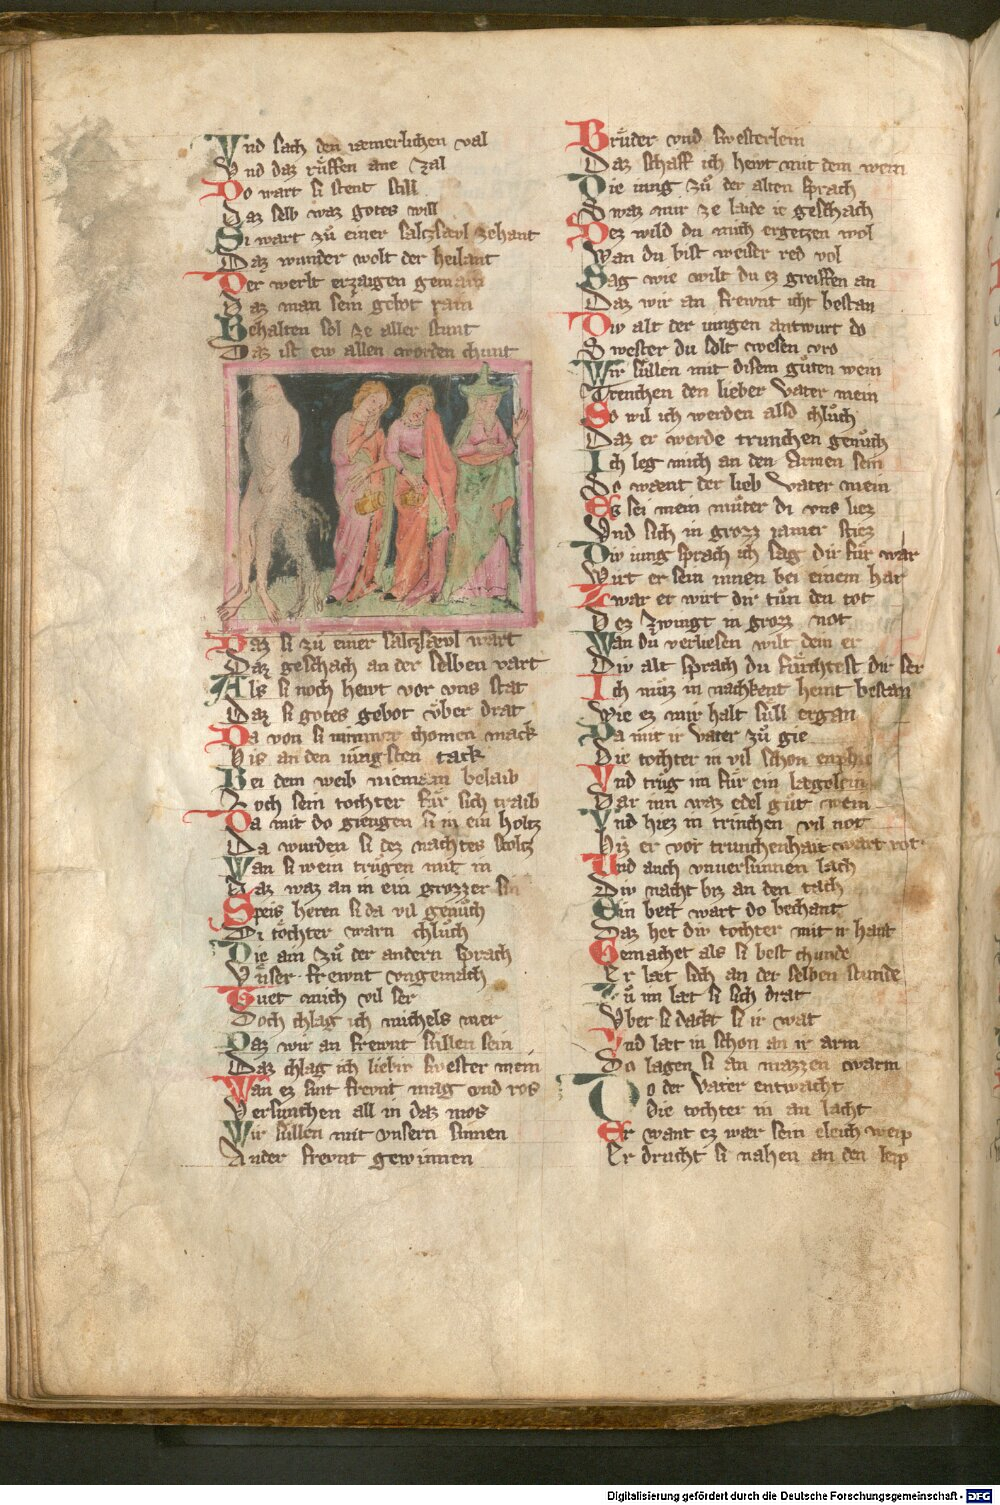 Vnd sach den iæmerlichen val
Vnd daz rüffen ane zal
Do wart si stent still
Daz selb waz gotes will
Si wart zů einer salczsæul zehant
Daz wunder wolt der heilant
Der werlt erzaigen gemain
Daz man sein gebot rain
Behalten sol ze aller stunt
Daz ist ew allen worden chunt
Daz si zů einer salczsæul wart
Daz geschach an der selben vart
Als si noch hewt vor vns stat
Daz si gotes gebot vber drat
Da von si nimmer chomen mack
Bis an den iungsten tack
Bei dem weib niemam belaib
Loth sein tochter für sich traib
Da mit do giengen si in ein holtz
Da wurden si dez nachtes stoltz
Wan si wein trůgen mit in
Daz waz an in ein grozzer sin
Speis heten si da vil genůch
Di töchter warn chlůch
Die ain zů der andern sprach
Vnser frewnt vngemach
Tuet mich vil ser
Doch chlag ich michels mer
Daz wir an frewnt süllen sein
Daz chlag ich liebiv swester mein
Wan ez sint frewnt mag vnd ros
Versunchen all in daz mos
Wir süllen mit vnsern sinnen
Ander frewnt gewinnen
Brüder vnd swesterlein
Daz schaff ich hewt mit dem wein
Die iung zů der alten sprach
Swaz mir ze laide ie geschach
Dez wild du mich ergetzen wol
Wan du bist weiser red vol
Sag wie wilt du ez greiffen an
Daz wir an frewnt icht bestan
Div alt der iungen antwurt do
Swester du solt wesen vro
Wir süllen mit disem gůten wein
Trenchen den lieber vater mein
So wil ich werden also chlůch
Daz er werde trunchen genůch
Ich leg mich an den armen sein
So wænt der lieb vater mein
Es sei mein můter di vns liez
Vnd sich in grozz iamer stiez
Div iung sprach ich sag dir für war
Wirt er sein innen bei einem har
Zwar er wirt dir tůn den tot
Dez zwingt in grozz not
Wan du verliesen wilt dein er
Div alt sprach du fürchtest dir ser
Ich můz in nachkent heint bestan
Wie ez mir halt süll ergan
Da mit ir vater zů gie
Die tochter in vil schon enphie
Vnd trůg im für ein lægelein
Dar inn waz edel gůt wein
Vnd hiez in trinchen vil not
Biz er vor trunchenhait wart rot
Und auch vnuersunnen lach
Div nacht biz an den tach
Ein bett wart do bechant
Daz het div tochter mit ir hant
Gemachet als si best chunde
Er læt sich an der selben stunde
Zů im læt si sich drat
Vber si dackt si ir wat
Vnd læt in schon an ir arm
Do lagen si an mazzen warm
Do der vater entwacht
Die tochter in an lacht
Er want ez war sein eleich weip
Er drucht si nahen an den leip
Digitalisierung gefördert durch die Deutsche Forschungsgemeinschaft - DFG